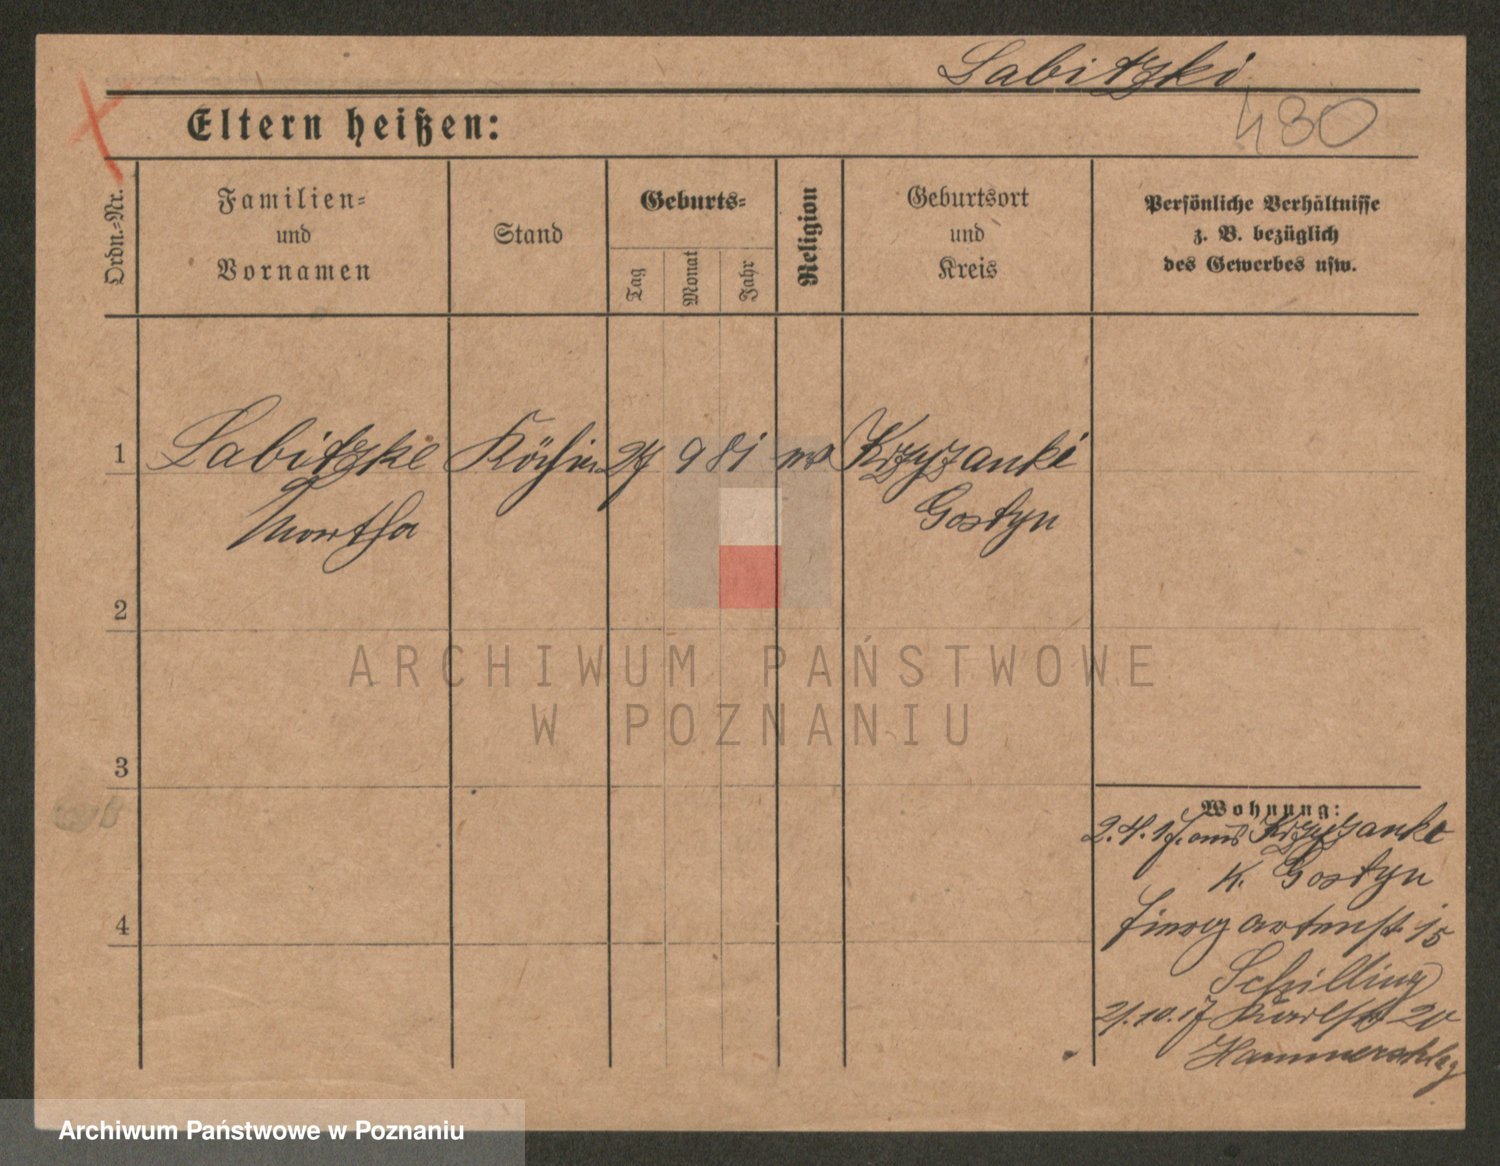 Labitzki
Eltern heißen:
480
Ordn.-Nr.
Familien-
und
Vornamen
Stand
Geburts-
Tag
Monat
Jahr
Religion
Geburtsort
und
Kreis
Persönliche Verhältnisse
z. B. bezüglich
des Gewerbes usw.
1 Labitzke Köchin 27 9 81 Krzyzanki
Martha Gostyn
2
ARCHIWUM PAŃSTWOWE
W POZNANIU
3
Wohnung:
2.4.17. aus Krzyzanke
K. Gostyn
4
Tiergartenstr 15
Schilling
21.10.17 Karlstr 20
Hammerschlag
Archiwum Państwowe w Poznaniu